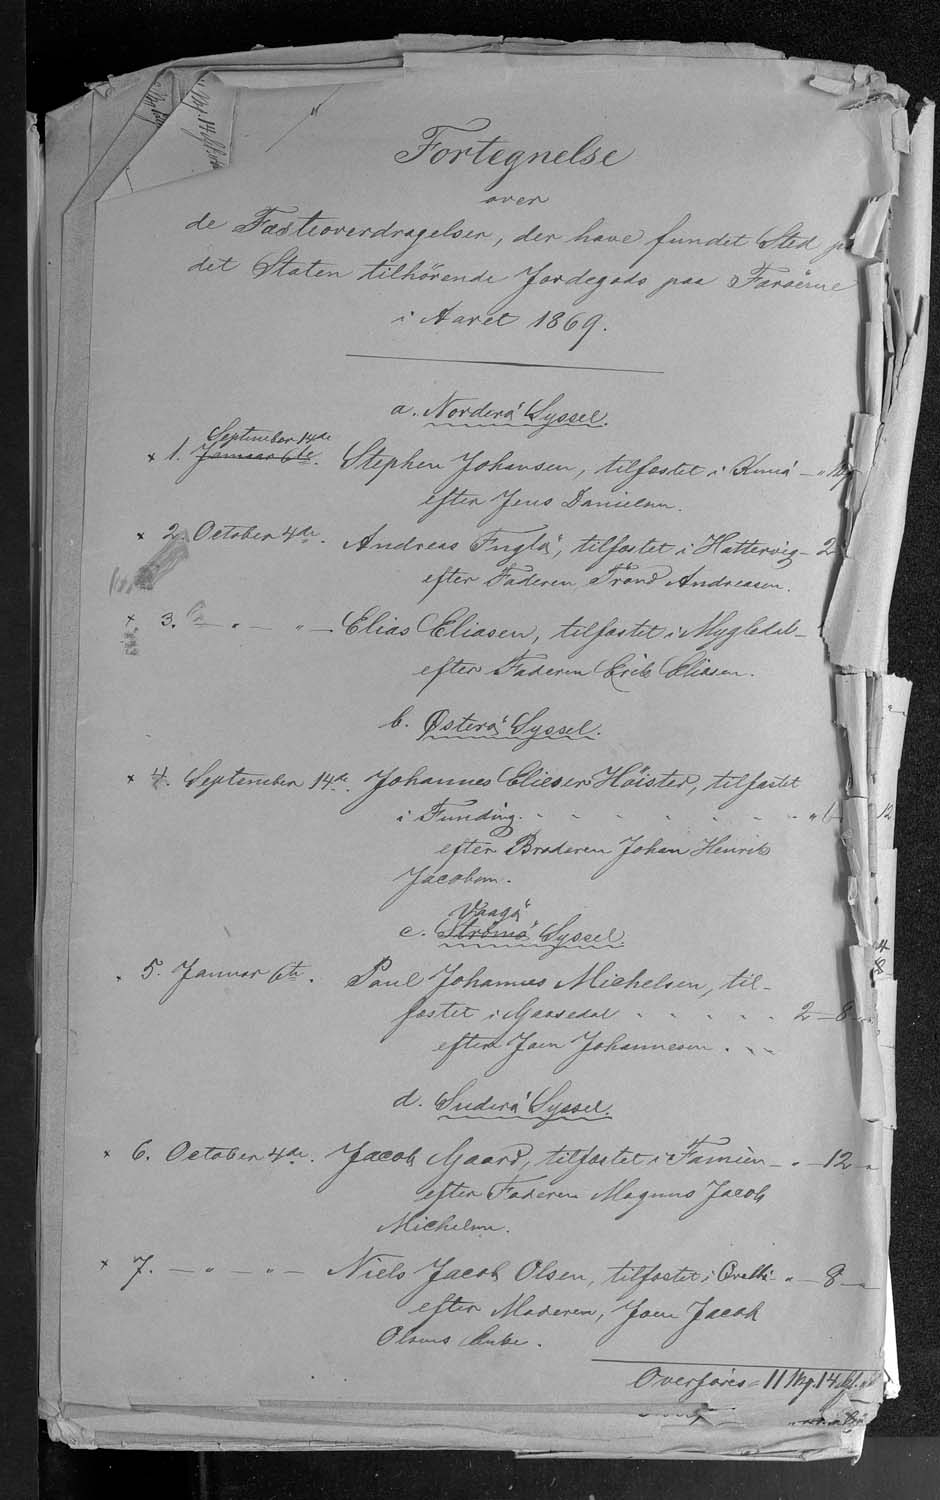 Fortegnelse
over
de Fæsteoverdragelser, der have fundet Sted
det Staten tilhörende Jordegods paa Færöerne
i Aaret 1869.
a. Norderö Syssel.
September 14de
× 1. Januar 6te. Stephen Johansen, tilfæstet i Kunö
efter Jens Danielsen.
× 2. October 4de. Andreas Fuglö, tilfæstet i Hattervig - 2
efter Faderen Trönd Andreasen.
× 3. — " — " — Elias Eliasen, tilfæstet i Mygledal -
efter Faderen Erik Eliasen.
b. Österö Syssel.
× 4. September 14de. Johannes Elieser Höisted, tilfæstet
i Funding. - - - - - - - " 6 12
efter Broderen Johan Henrik
Jacobsen.
Vaagö
c. Strömö Syssel.
5. Januar 6te. Paul Johannes Michelsen, til-
fæstet i Gaasedal . . . . . 2 - 8
efter Joen Johannesen.
d. Suderö Syssel.
× 6. October 4de. Jacob Gaard, tilfæstet i Famien - " - 12 - "
efter Faderen Magnus Jacob
Michelsen.
× 7. — " — " — Niels Jacob Olsen, tilfæstet i Qvalbö " - 8 - "
efter Moderen, Joen Jacob
Olsens Enke.
Overföres = 11 Mg. 14